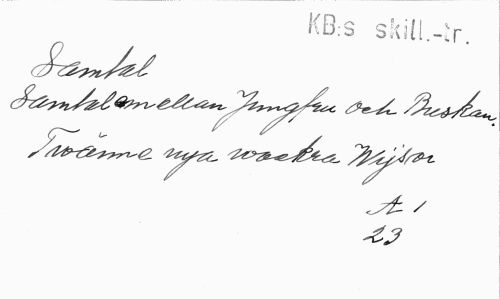 KB:s skill.-tr.
Samtal
Samtal mellan Jungfru och Buskan.
Twänne nya wackra Wijsor
A 1
23